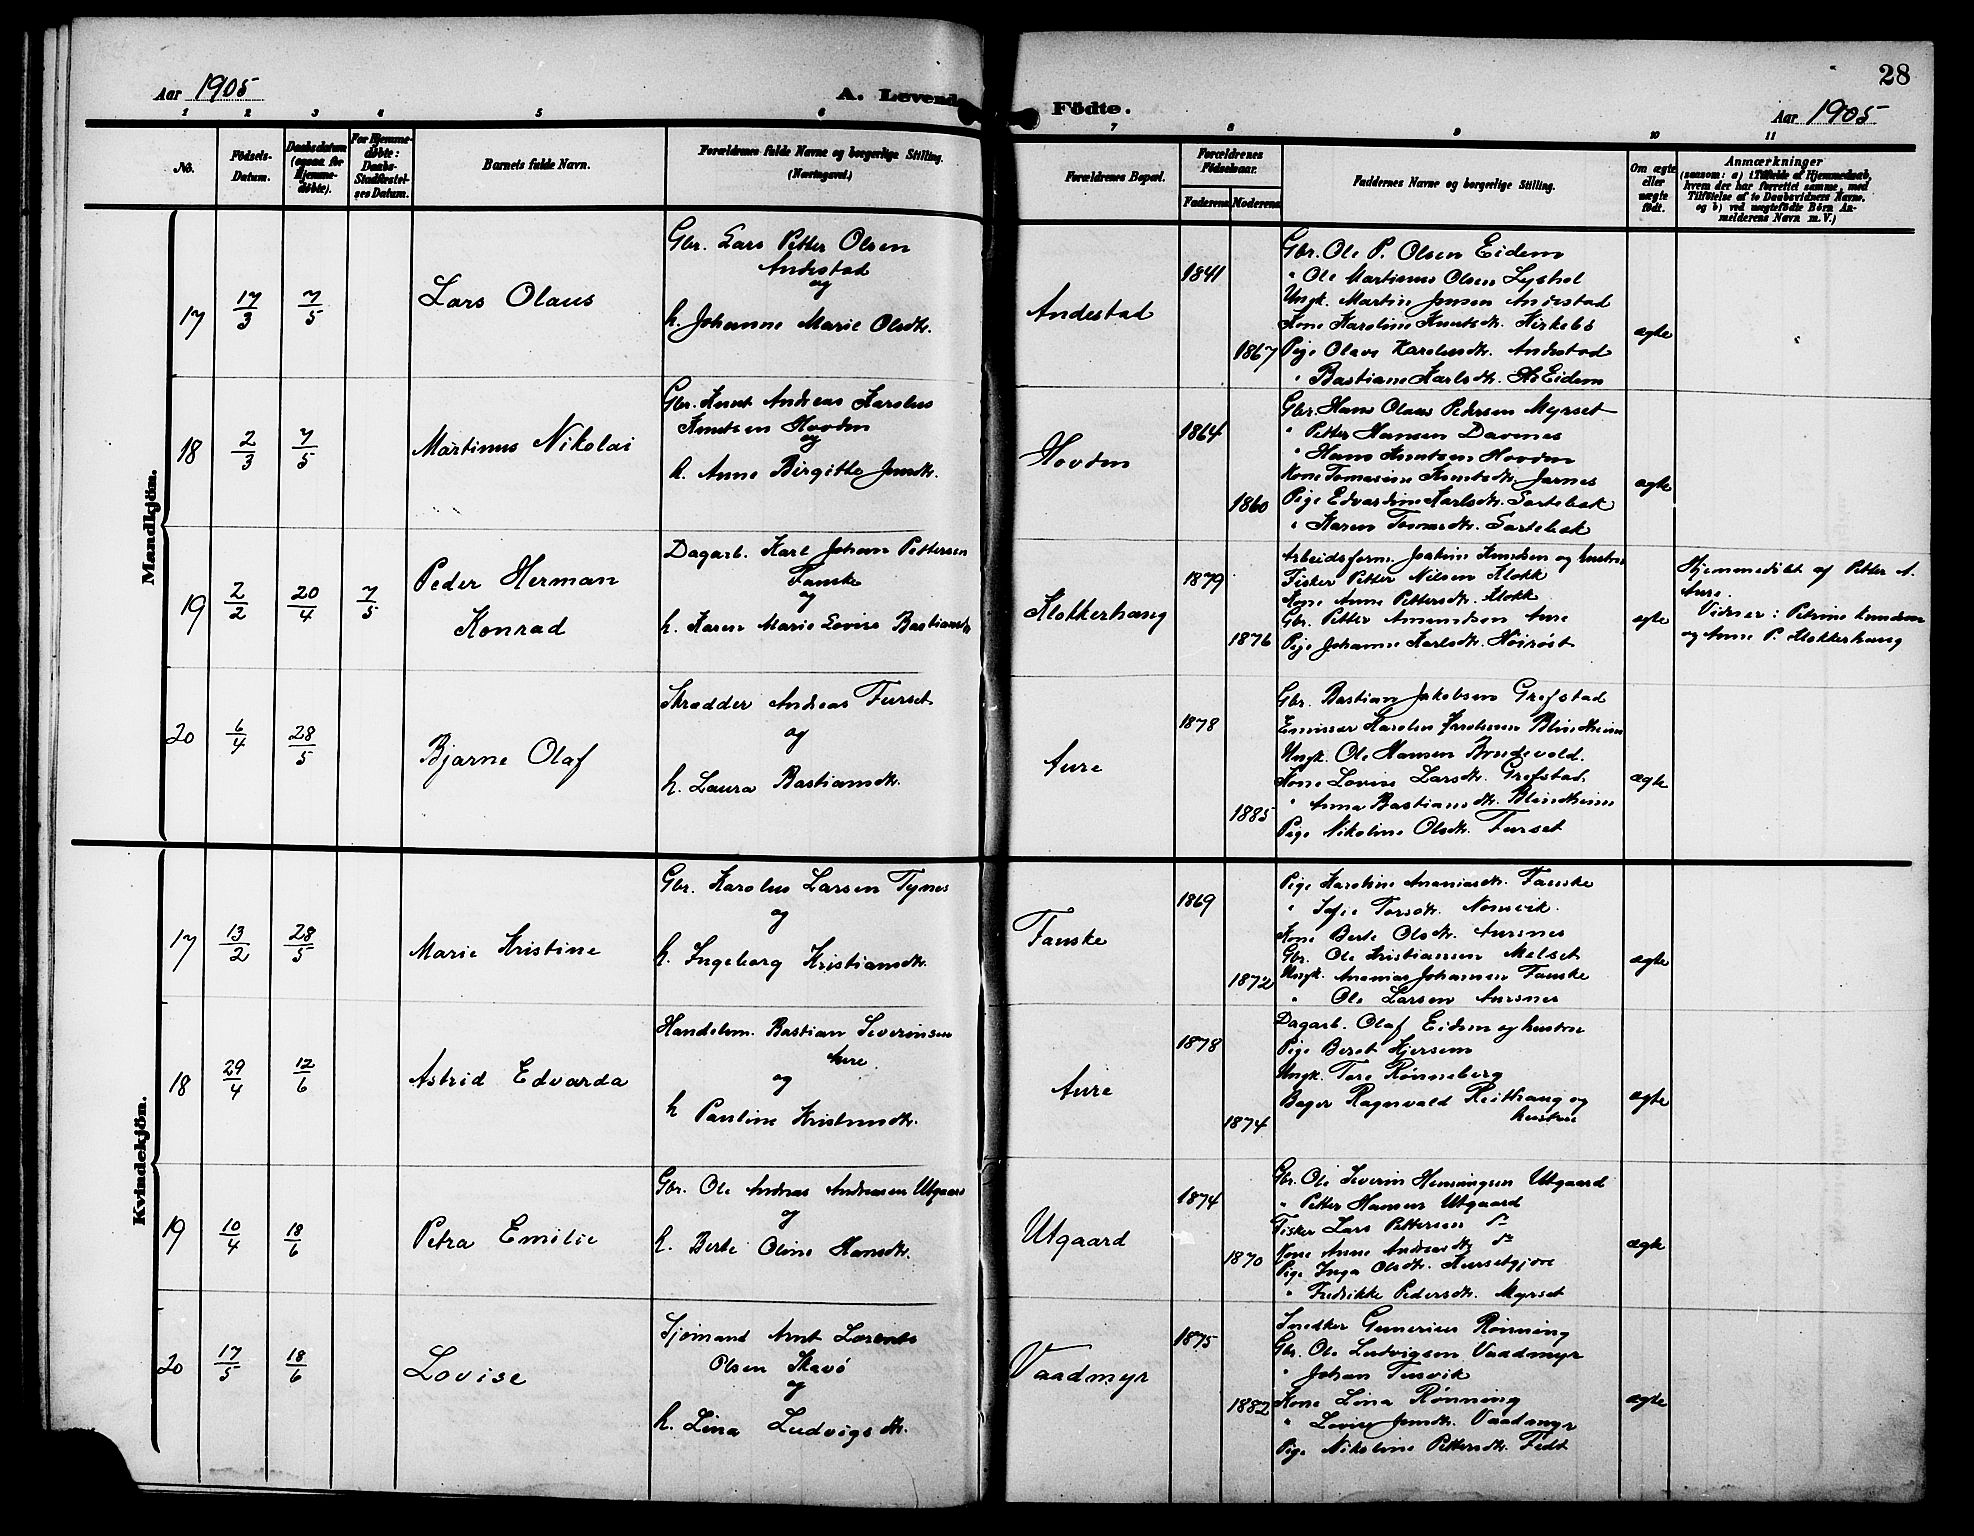 28
Aar 1905
A. Levende Födte.
Aar 1905
1 2 3 4 5 6 7 8 9 10 11
No.
Födsels-Datum.
Daabsdatum (ogsaa for Hjemmedöbte).
For Hjemmedöbte: Daabs-Stadfæstelses Datum.
Barnets fulde Navn.
Forældrenes fulde Navne og borgerlige Stilling.
(Næringsvei.)
Forældrenes Bopæl.
Forældrenes Födselsaar.
Faderens Moderens
Faddernes Navne og borgerlige Stilling.
Om ægte eller uægte födt.
Anmærkninger
(saasom: a) i Tilfælde af Hjemmedaab,
hvem der har forrettet samme, med
Tilföielse af to Daabsvidners Navne,
og b) ved uægtefödte Börn An-
melderens Navn m. V.)
Mandkjön.
17 17/3 7/5
Lars Olaus
Gbr. Lars Petter Olsen
Andestad
og
h. Johanne Marie Olsdtr.
Andestad
1841
1867
Gbr. Ole P. Olsen Eidem
" Ole Martinus Olsen Lyshol
Ungk. Martin Jensen Andestad
Kone Karoline Knutsdtr. Kirkebö
Pige Olave Karolusdtr. Andestad
" Bastiane Karlsdtr. Eidem
ægte
18 2/3 7/5
Martinus Nikolai
Gbr. Knut Andreas Karolus
Knutsen Hovden
og
h. Anne Birgitte Jensdtr.
Hovden
1864
1860
Gbr. Hans Olaus Pedersen Myrset
" Petter Hansen Davenes
" Hans Knutsen Hovden
Kone Tomasine Knutsdtr. Jarnes
Pige Edvardine Karlsdtr. Sartebak
" Karen Tomasdtr. Sartebak
ægte
19 2/2 20/4 7/5
Peder Herman
Konrad
Dagarb. Karl Johan Pettersen
Fauske
og
h. Karen Marie Lovise Bastiansdtr.
Klokkerhaug
1879
1876
Arbeidsform. Joakim Knudsen og hustru
Fisker Petter Nilsen Klokk
Kone Anne Pettersdtr. Klokk
Gbr. Petter Amundsen Aure
Pige Johanne Karlsdtr. Höiröst
ægte
Hjemmedöbt af Petter A.
Aure.
Vidner: Petrine Knudsen
og Anne P. Klokkerhaug
20 6/4 28/5
Bjarne Olaf
Skrædder Andreas Furset
og
h. Laura Bastiansdtr.
Aure
1878
1885
Gbr. Bastian Jakobsen Grefstad
Emissær Karolus Karolussen Blindheim
Ungk. Ole Hansen Brudevold.
Kone Lovise Larsdtr. Grefstad
" Anna Bastiansdtr. Blindheim
Pige Nikoline Olsdtr. Furset
ægte
Kvindekjön.
17 13/2 28/5
Marie Kristine
Gbr. Karolus Larsen Tynes
og
h. Ingeborg Kristiansdtr.
Fauske
1869
1872
Pige Karoline Ananiasdtr. Fauske
" Sofie Torsdtr. Nomevik.
Kone Berte Olsdtr. Aursnes
Gbr. Ole Kristiansen Melset
Ungk. Ananias Johansen Fauske
" Ole Larsen Aursnes
ægte
18 29/4 12/6
Astrid Edvarda
Handelsm. Bastian Severinsen
Aure
og
h Pauline Kristensdtr.
Aure
1878
1874
Dagarb. Olaf Eidem og hustru
Pige Beret Hjersem
Ungk. Tore Rönneberg
Bager Ragnvald Reithaug og
hustru
ægte
19 10/4 18/6
Petra Emilie
Gbr. Ole Andreas Andreassen Utgaard
og
h. Berte Oline Hansdtr.
Utgaard
1874
1870
Gbr. Ole Severin Henningsen Utgaard
" Petter Hansen Utgaard
Fisker Lars Pettersen do
Kone Anne Andreasdtr. do
Pige Inga Olsdtr. Kursetgjære
" Fredrikke Pedersdtr. Myrset
ægte
20 17/5 18/6
Lovise
Sjömand Arnt Lorents
Olsen Skavö
og
h. Lina Ludvigsdtr.
Vaadmyr
1875
1882
Snedker Gunerius Rönning
Gbr. Ole Ludvigsen Vaadmyr
" Johan Tusvik
Kone Lina Rönning
" Lovise Jensdtr. Vaadmyr
Pige Nikoline Pettersdtr. Fedt
ægte